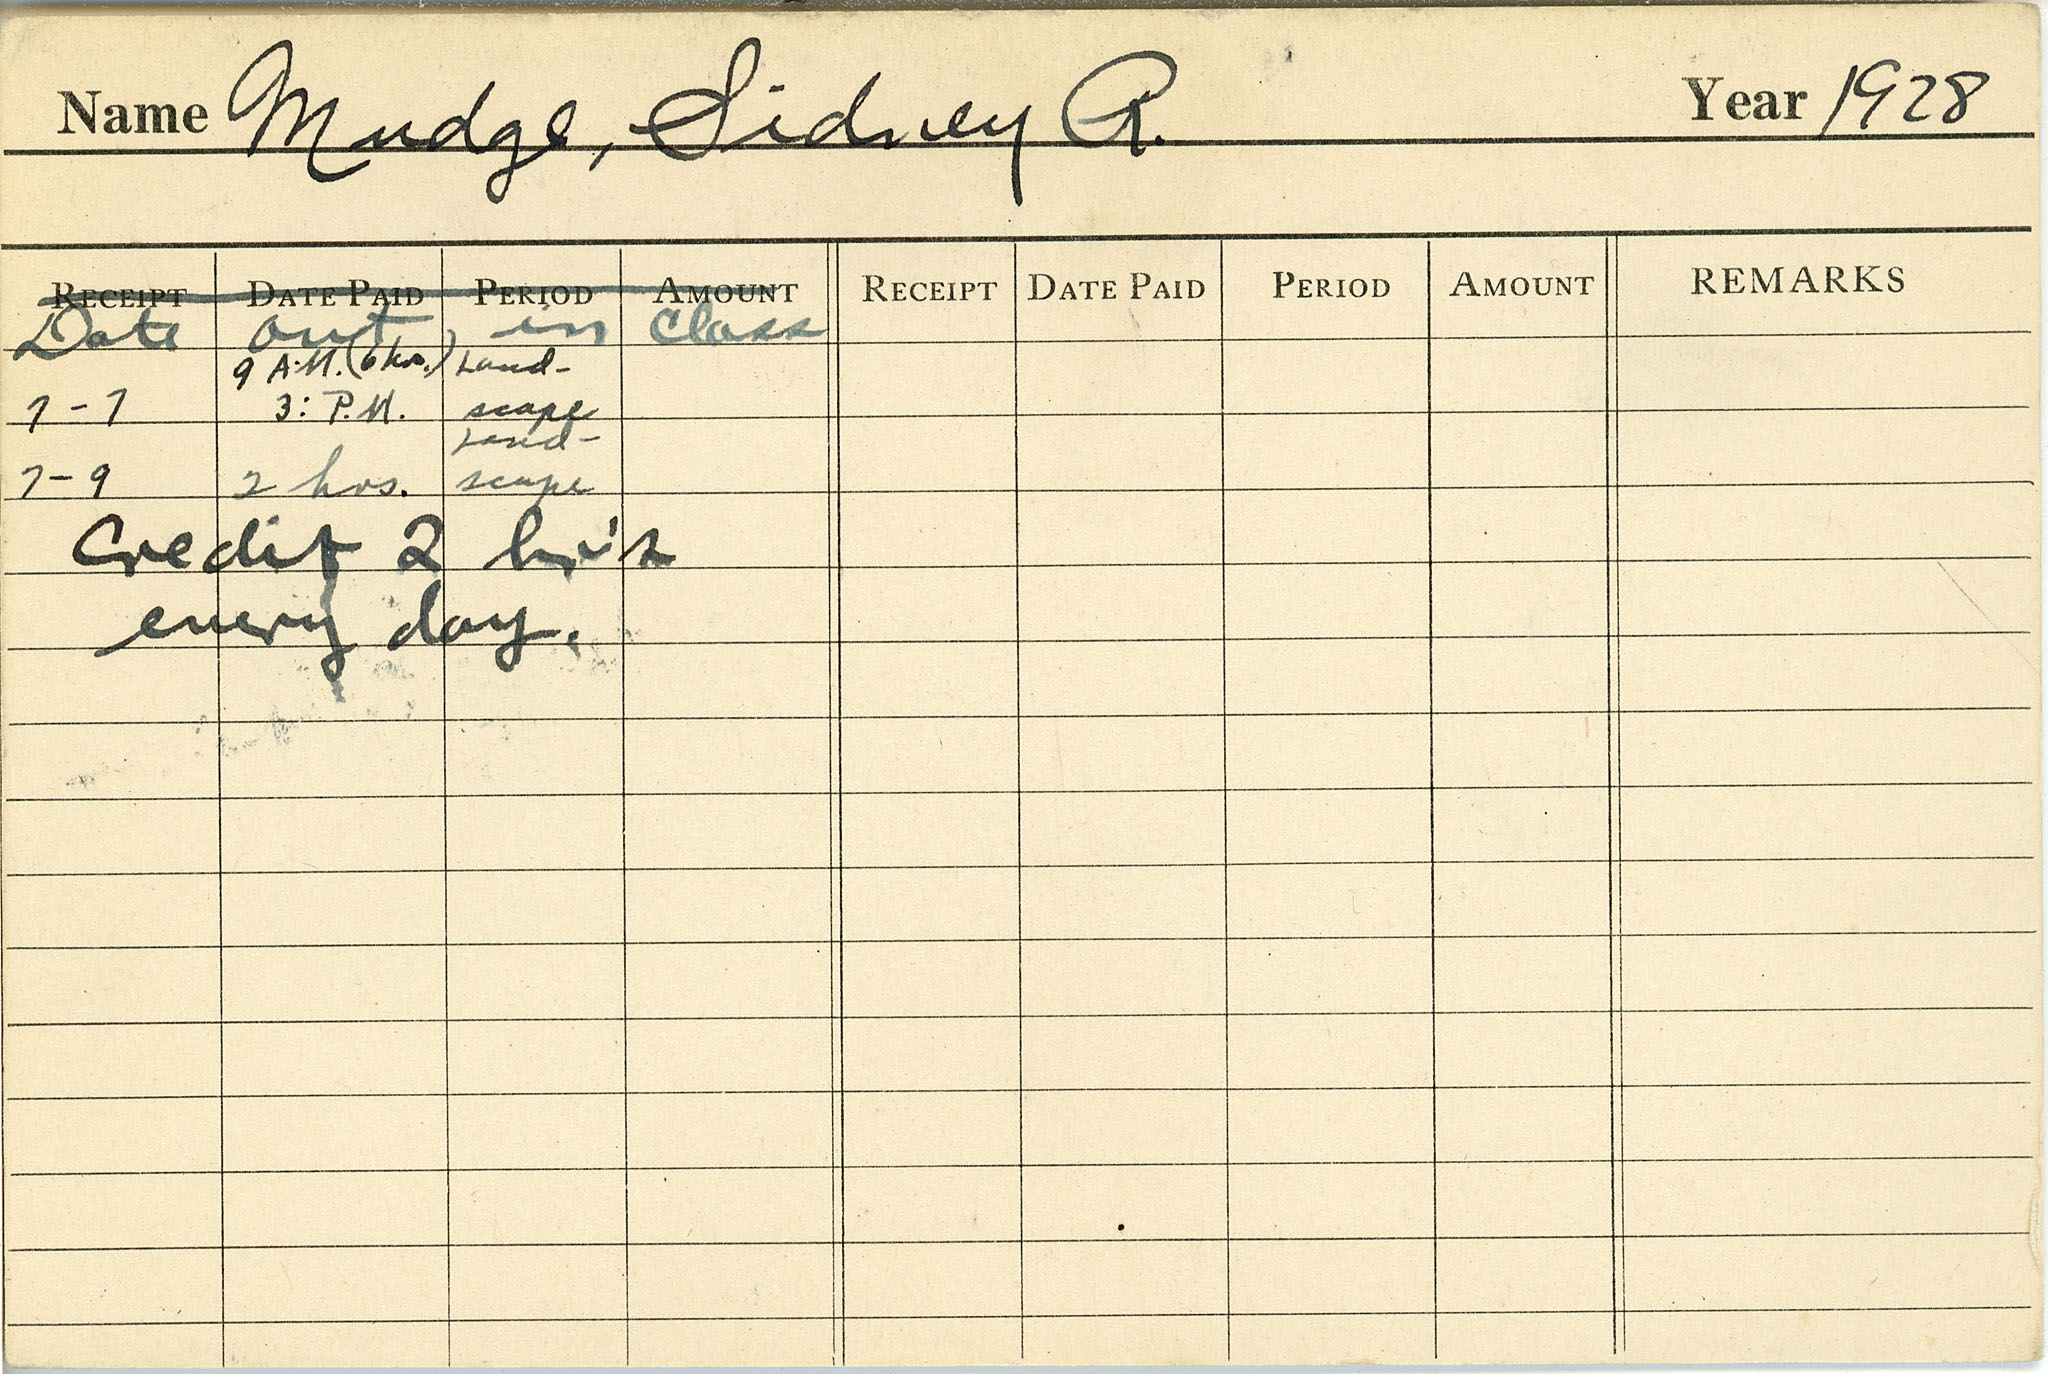 Name Mudge, Sidney R. Year 1928
RECEIPT DATE PAID PERIOD AMOUNT RECEIPT DATE PAID PERIOD AMOUNT REMARKS
Date out in Class
9 A.M. (6 hrs.) Land-
7-7 3: P.M. scape
Land-
7-9 2 hrs. scape
Credit 2 hr's
every day.